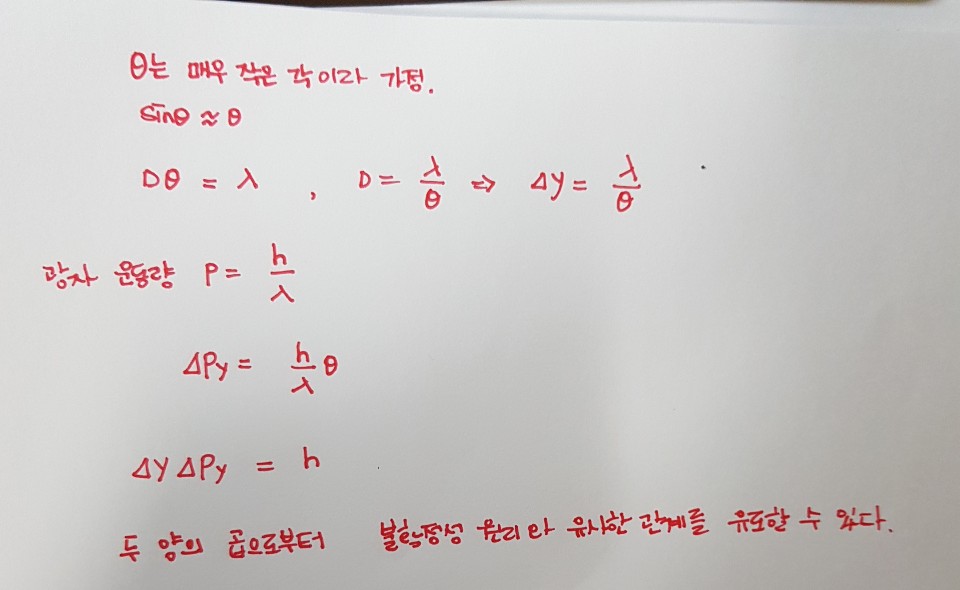 θ는 매우 작은 각이라 가정.
sinθ ≈ θ
Dθ = λ , D = λ/θ ⇒ ΔY = λ/θ
광자 운동량 P = h/λ
ΔPy = h/λ θ
ΔY ΔPy = h
두 양의 곱으로부터 불확정성 원리와 유사한 관계를 유도할 수 있다.